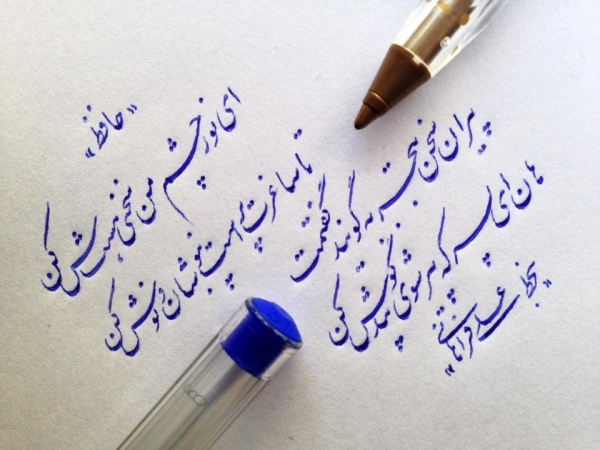 «حافظ»
ای نور چشم من سخنی هست گوش کن
تا ساغرت پر است بنوشان و نوش کن
پیران سخن به تجربه گویند گفتمت
هان ای پسر که پیر شوی پند گوش کن
«بخط فراهانی»